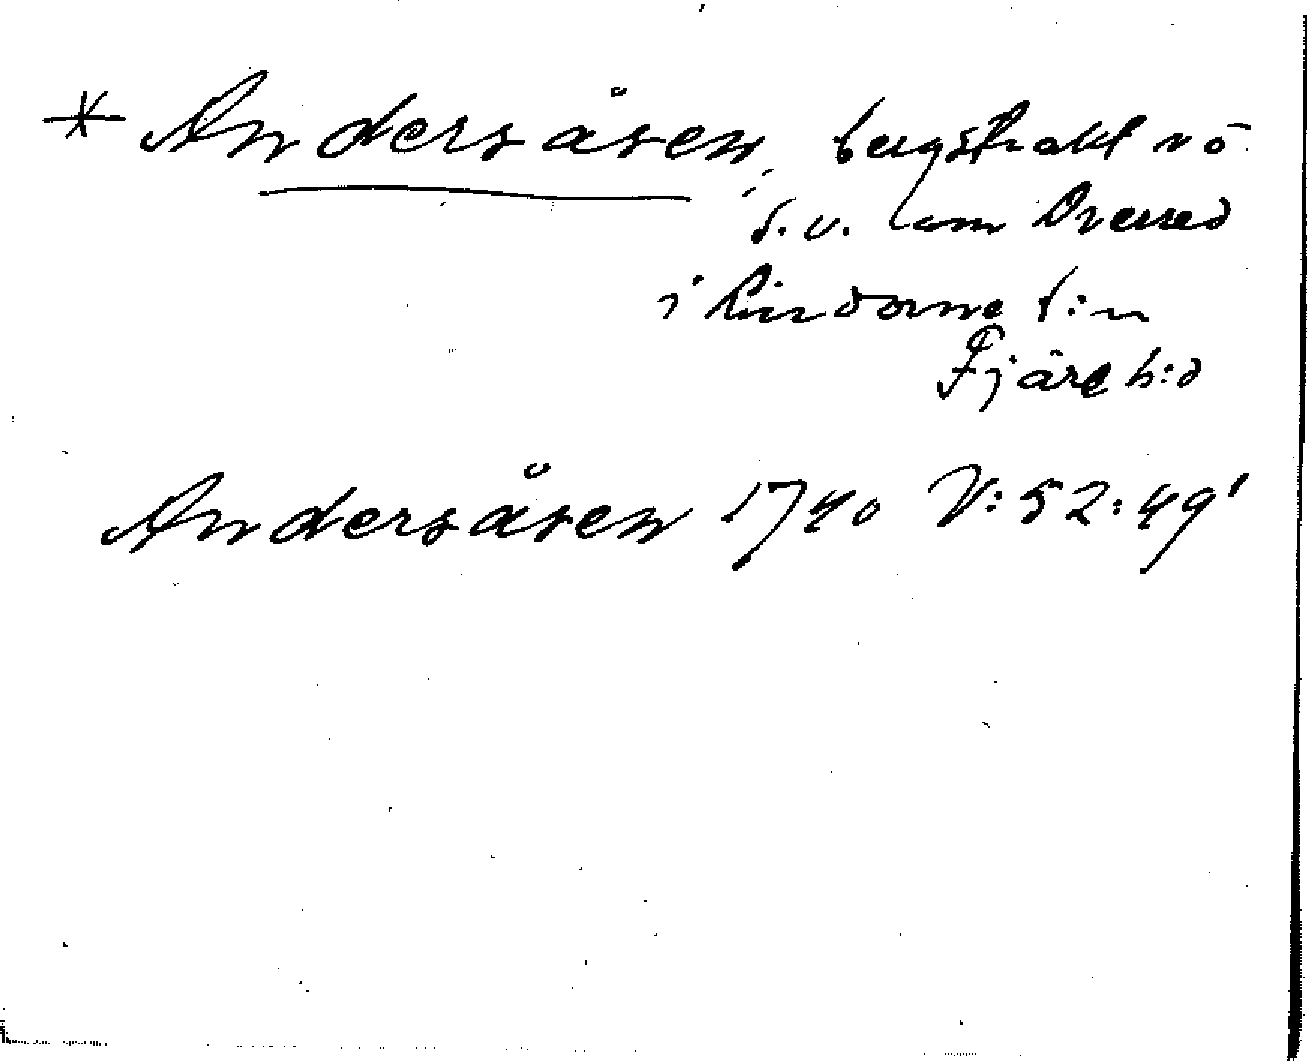 * Andersåsen, bergstrakt nö
s.v. om
i Lindome s:n
Fjäre h:d
Andersåsen 1740 V:52:49'